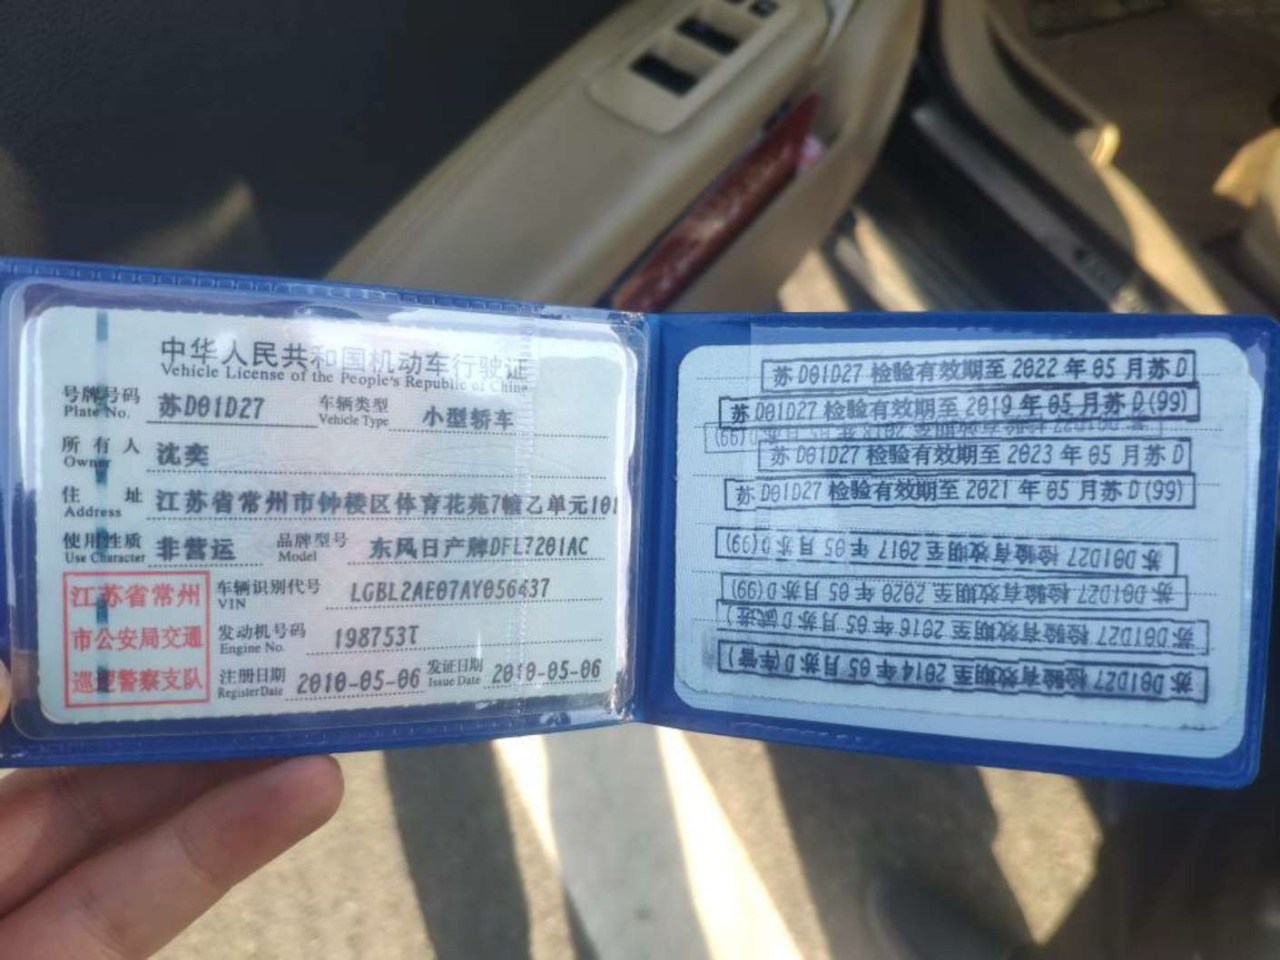 中华人民共和国机动车行驶证
Vehicle License of the People's Republic of China
号牌号码 Plate No. 苏D01D27 车辆类型 Vehicle Type 小型轿车
所有人 Owner 沈奕
住址 Address 江苏省常州市钟楼区体育花苑7幢乙单元101
使用性质 Use Character 非营运 品牌型号 Model 东风日产牌DFL7201AC
车辆识别代号 VIN LGBL2AE07AY056437
发动机号码 Engine No. 198753T
注册日期 Register Date 2010-05-06 发证日期 Issue Date 2010-05-06
江苏省常州
市公安局交通
巡逻警察支队
苏D01D27 检验有效期至 2022 年 05 月苏 D
苏 D01D27 检验有效期至 2019 年 05 月苏 D(99)
苏 D01D27 检验有效期至 2018 年 05 月 苏 D(99)
苏 D01D27 检验有效期至 2023 年 05 月苏 D
苏 D01D27 检验有效期至 2021 年 05 月苏 D(99)
苏 D01D27 检验有效期至 2017 年 05 月 苏 D(99)
苏 D01D27 检验有效期至 2020 年 05 月 苏 D(99)
苏 D01D27 检验有效期至 2016 年 05 月苏 D
苏 D01D27 检验有效期至 2014 年 05 月苏 D(车管)